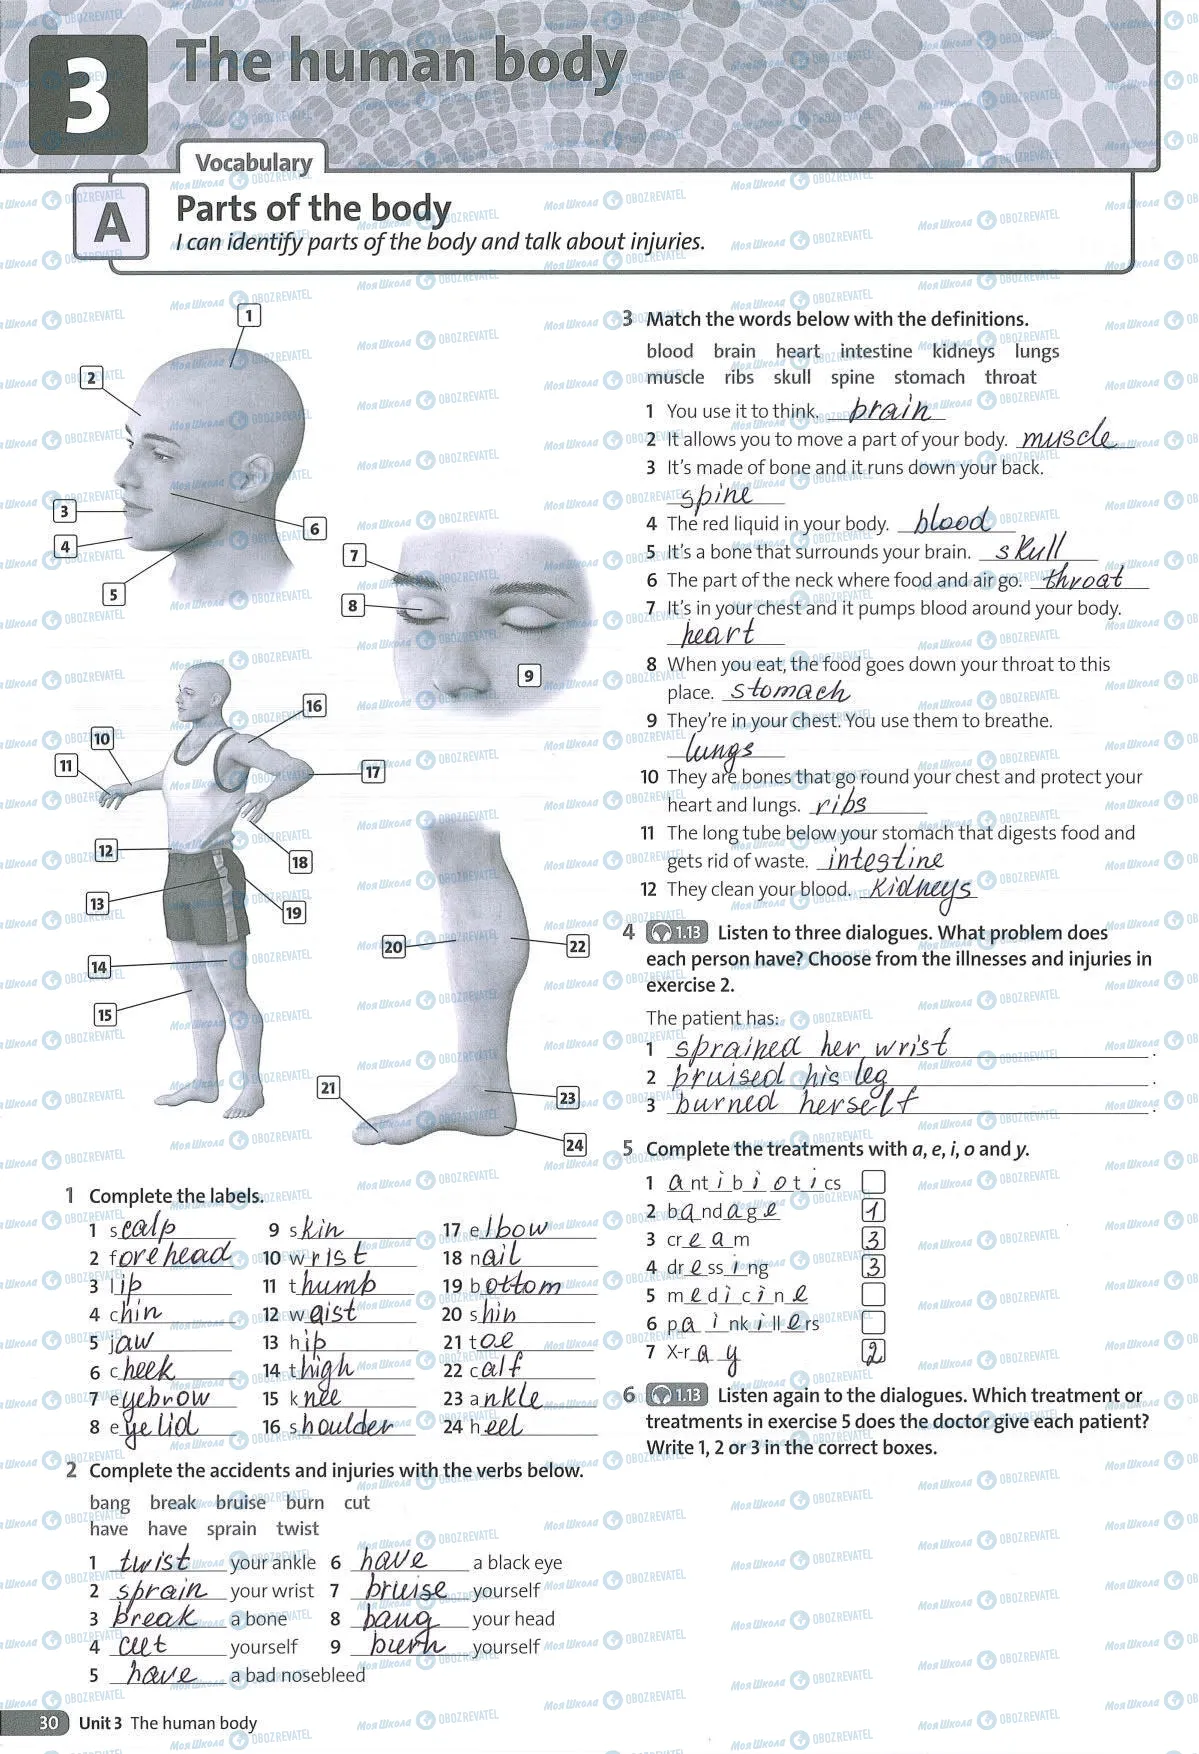 3
The human body
Vocabulary
A
Parts of the body
I can identify parts of the body and talk about injuries.
1
2
3
4
5
6
7
8
9
10
11
12
13
14
15
16
17
18
19
20
21
22
23
24
1 Complete the labels.
1 scalp
2 forehead
3 lip
4 chin
5 jaw
6 cheek
7 eyebrow
8 eyelid
9 skin
10 wrist
11 thump
12 waist
13 hip
14 thigh
15 knee
16 shoulder
17 elbow
18 nail
19 bottom
20 shin
21 toe
22 calf
23 ankle
24 heel
2 Complete the accidents and injuries with the verbs below.
bang break bruise burn cut
have have sprain twist
1 twist your ankle
2 sprain your wrist
3 break a bone
4 cut yourself
5 have a bad nosebleed
6 have a black eye
7 bruise yourself
8 bang your head
9 burn yourself
3 Match the words below with the definitions.
blood brain heart intestine kidneys lungs
muscle ribs skull spine stomach throat
1 You use it to think. brain
2 It allows you to move a part of your body. muscle
3 It's made of bone and it runs down your back.
spine
4 The red liquid in your body. blood
5 It's a bone that surrounds your brain. skull
6 The part of the neck where food and air go. throat
7 It's in your chest and it pumps blood around your body.
heart
8 When you eat, the food goes down your throat to this
place. stomach
9 They're in your chest. You use them to breathe.
lungs
10 They are bones that go round your chest and protect your
heart and lungs. ribs
11 The long tube below your stomach that digests food and
gets rid of waste. intestine
12 They clean your blood. kidneys
4 1.13 Listen to three dialogues. What problem does
each person have? Choose from the illnesses and injuries in
exercise 2.
The patient has:
1 sprained her wrist.
2 bruised his leg.
3 burned herself.
5 Complete the treatments with a, e, i, o and y.
1 antibiotics
2 bandage 1
3 cream 3
4 dressing 3
5 medicine
6 painkillers
7 X-ray 2
6 1.13 Listen again to the dialogues. Which treatment or
treatments in exercise 5 does the doctor give each patient?
Write 1, 2 or 3 in the correct boxes.
30 Unit 3 The human body
Моя Школа OBOZREVATEL